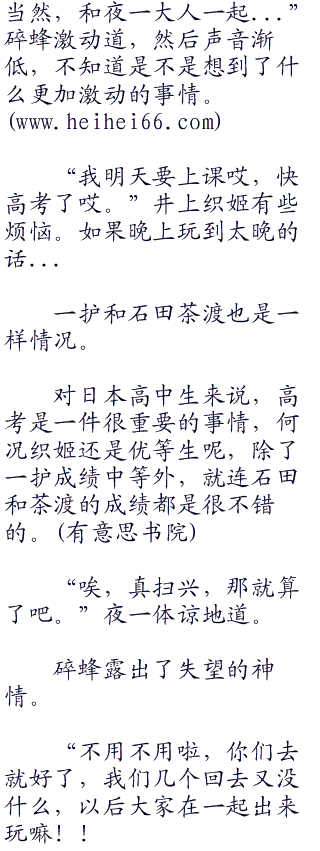 当然，和夜一大人一起...”
碎蜂激动道，然后声音渐
低，不知道是不是想到了什
么更加激动的事情。
(www.heihei66.com)
“我明天要上课哎，快
高考了哎。”井上织姬有些
烦恼。如果晚上玩到太晚的
话...
一护和石田茶渡也是一
样情况。
对日本高中生来说，高
考是一件很重要的事情，何
况织姬还是优等生呢，除了
一护成绩中等外，就连石田
和茶渡的成绩都是很不错
的。(有意思书院)
“唉，真扫兴，那就算
了吧。”夜一体谅地道。
碎蜂露出了失望的神
情。
“不用不用啦，你们去
就好了，我们几个回去又没
什么，以后大家在一起出来
玩嘛！！